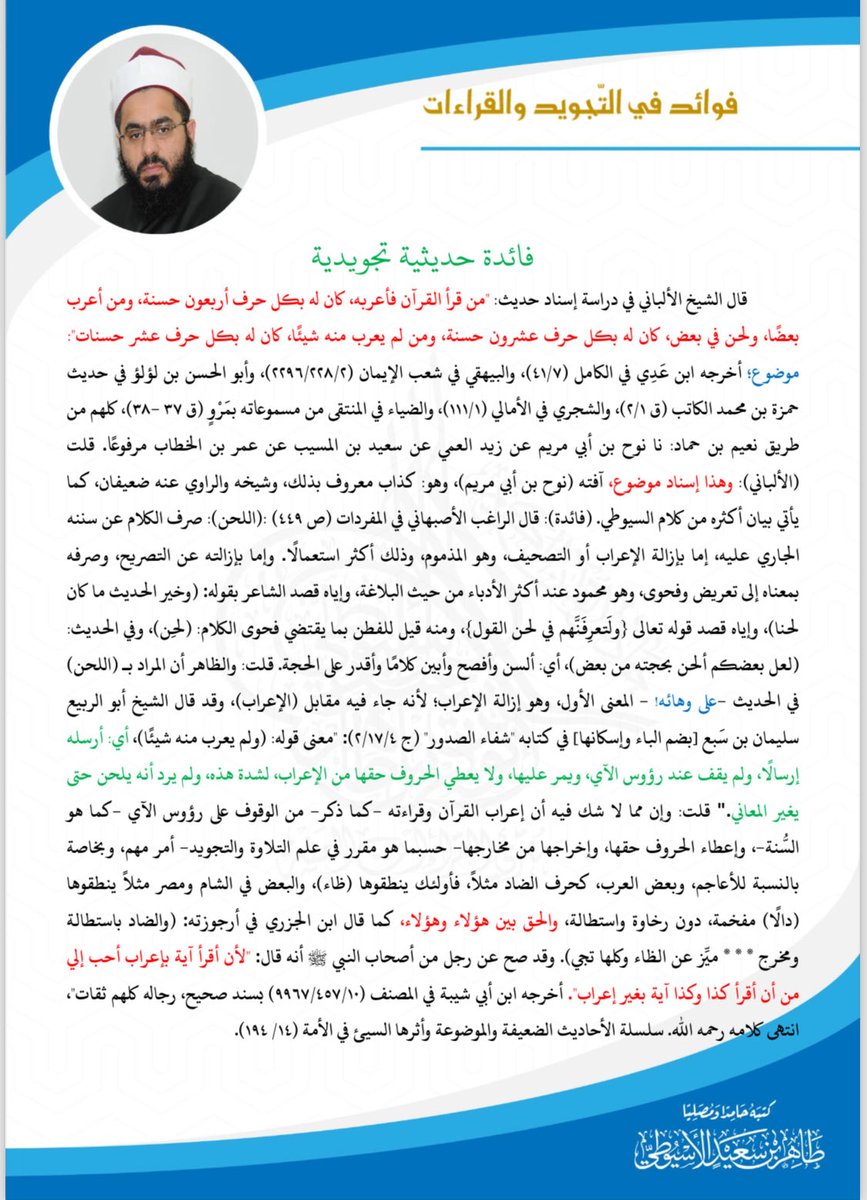 فوائد في التّجويد والقراءات
فائدة حديثية تجويدية
قال الشيخ الألباني في دراسة إسناد حديث: "من قرأ القرآن فأعربه، كان له بكل حرف أربعون حسنة، ومن أعرب
بعضًا، ولحن في بعض، كان له بكل حرف عشرون حسنة، ومن لم يعرب منه شيئًا، كان له بكل حرف عشر حسنات":
موضوع؛ أخرجه ابن عَدِي في الكامل (٤١/٧)، والبيهقي في شعب الإيمان (٢٢٩٦/٢٢٨/٢)، وأبو الحسن بن لؤلؤ في حديث
حمزة بن محمد الكاتب (ق ٢/١)، والشجري في الأمالي (١١١/١)، والضياء في المنتقى من مسموعاته بمَرْوٍ (ق ٣٧ -٣٨)، كلهم من
طريق نعيم بن حماد: نا نوح بن أبي مريم عن زيد العمي عن سعيد بن المسيب عن عمر بن الخطاب مرفوعًا. قلت
(الألباني): وهذا إسناد موضوع، آفته (نوح بن أبي مريم)، وهو: كذاب معروف بذلك، وشيخه والراوي عنه ضعيفان، كما
يأتي بيان أكثره من كلام السيوطي. (فائدة): قال الراغب الأصبهاني في المفردات (ص ٤٤٩) :(اللحن): صرف الكلام عن سننه
الجاري عليه، إما بإزالة الإعراب أو التصحيف، وهو المذموم، وذلك أكثر استعمالًا. وإما بإزالته عن التصريح، وصرفه
بمعناه إلى تعريض وفحوى، وهو محمود عند أكثر الأدباء من حيث البلاغة، وإياه قصد الشاعر بقوله: (وخير الحديث ما كان
لحنا)، وإياه قصد قوله تعالى {ولَتعرِفَنَّهم في لحن القول}، ومنه قيل للفطن بما يقتضي فحوى الكلام: (لحِن)، وفي الحديث:
(لعل بعضكم ألحن بحجته من بعض)، أي: ألسن وأفصح وأبين كلامًا وأقدر على الحجة. قلت: والظاهر أن المراد بـ (اللحن)
في الحديث -على وهائه! - المعنى الأول، وهو إزالة الإعراب؛ لأنه جاء فيه مقابل (الإعراب)، وقد قال الشيخ أبو الربيع
سليمان بن سَبع [بضم الباء وإسكانها] في كتابه "شفاء الصدور" (ج ٢/١٧/٤): "معنى قوله: (ولم يعرب منه شيئًا)، أي: أرسله
إرسالًا، ولم يقف عند رؤوس الآي، ويمر عليها، ولا يعطي الحروف حقها من الإعراب، لشدة هذه، ولم يرد أنه يلحن حتى
يغير المعاني." قلت: وإن مما لا شك فيه أن إعراب القرآن وقراءته -كما ذكر- من الوقوف على رؤوس الآي -كما هو
السُّنة-، وإعطاء الحروف حقها، وإخراجها من مخارجها- حسبما هو مقرر في علم التلاوة والتجويد- أمر مهم، وبخاصة
بالنسبة للأعاجم، وبعض العرب، كحرف الضاد مثلاً، فأولئك ينطقوها (ظاء)، والبعض في الشام ومصر مثلاً ينطقوها
(دالًا) مفخمة، دون رخاوة واستطالة، والحق بين هؤلاء وهؤلاء، كما قال ابن الجزري في أرجوزته: (والضاد باستطالة
ومخرج *** ميِّز عن الظاء وكلها تجي). وقد صح عن رجل من أصحاب النبي ﷺ أنه قال: "لأن أقرأ آية بإعراب أحب إلي
من أن أقرأ كذا وكذا آية بغير إعراب". أخرجه ابن أبي شيبة في المصنف (٩٩٦٧/٤٥٧/١٠) بسند صحيح، رجاله كلهم ثقات"،
انتهى كلامه رحمه الله. سلسلة الأحاديث الضعيفة والموضوعة وأثرها السيئ في الأمة (١٤/ ١٩٤).
كتبه حامدًا ومصليًا
طاهر بن سعيد الأسيوطي